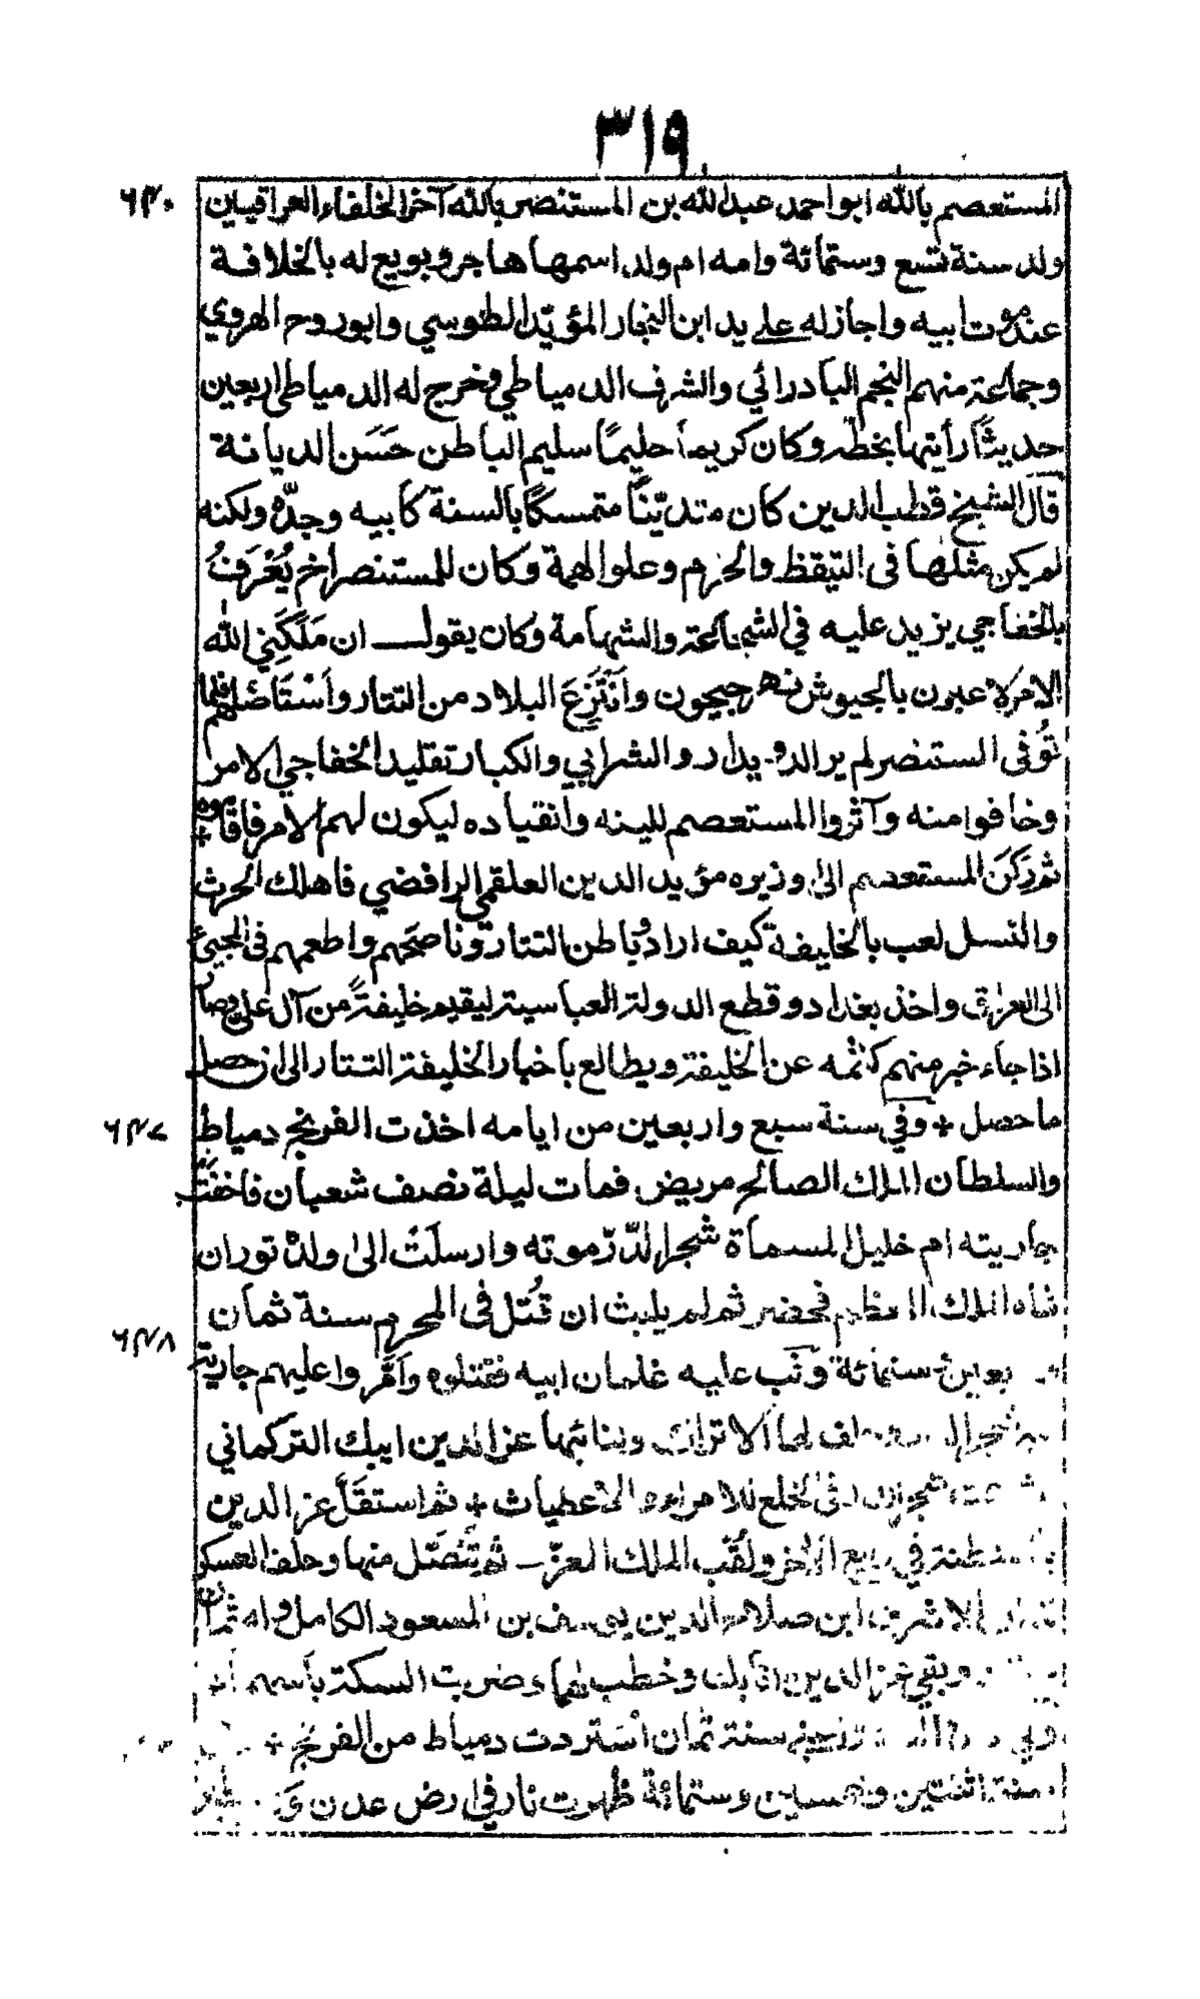 ٣١٩
المستعصم بالله ابو احمد عبد الله بن المستنصر بالله آخر الخلفاء العراقيين
٦٤٠
ولد سنة تسع وستمائة وامه ام ولد اسمها هاجر وبويع له بالخلافة
عند موت ابيه واجاز له على يد ابن النجار المؤيّد الطوسي وابو روح الهروي
وجماعة منهم النجم البادرائي والشرف الدمياطي وخرج له الدمياطي اربعين
حديثًا رأيتها بخطه وكان كريماً حليمًا سليم الباطن حَسَن الديانة
قال الشيخ قطب الدين كان متديّنًا متمسكًا بالسنة كأبيه وجدّه ولكنه
لم يكن مثلها فى التيقظ والحزم وعلو الهمة وكان للمستنصر اخ يُعْرَفُ
بالخفاجي يزيد عليه في الشجاعة والشهامة وكان يقول ان مَلَّكَنِي اللّٰه
الامر لاعبرن بالجيوش نهر جيحون وأنْتَزِعَ البلاد من التتار وأسْتَأصلهم فلما
تُوُفى المستنصر لم ير الدويدار والشرابي والكبار تقليد الخفاجي الامر
وخافوا منه وآثروا المستعصم للينه وانقياده ليكون لهم الامر فاقاموه +
ثم رَكَنَ المستعصم الى وزيره مؤيد الدين العلقمي الرافضي فاهلك الحرث
والنسل لعب بالخليفة كيف اراد وباطن التتار وناصحهم واطعمهم فى المجيئ
الى العراق واخذ بغداد وقطع الدولة العباسية ليقيم خليفةً من آل علي وصار
اذا جاء خبر منهم كتمه عن الخليفة ويطالع بأخبار الخليفة التتار الى ان حصل
ما حصل + وفي سنة سبع واربعين من ايامه اخذت الفرنج دمياط
٦٤٧
والسلطان الملك الصالح مريض فمات ليلة نصف شعبان فاخفَتْ
جاريته ام خليل المسماة شجر الدّرّ موته وارسلَتْ الى ولده توران
شاه الملك المعظم فحضر ثم لم يلبث ان قُتل فى المحرم سنة ثمان
٦٤٨
وستمائة وثب عليه غلمان ابيه فقتلوه وأمَّروا عليهم جارية
لها الاتراك وبنائبها عز الدين ايبك التركماني
فى الخلع للامراء والاعطيات + ثم استقلَّ عز الدين
فى ربيع الآخر ولُقّب الملك المعزّ ثم تَنَصَّل منها وحلف العسكر
الاشرف ابن صلاح الدين يوسف بن المسعود الكامل وله ثمان
وبقي عز الدين اتابك وخطب لهما وضربت السكة باسمهما
سنة ثمان أسْتردت دمياط من الفرنج +
سنة اثنتين وخمسين وستمائة ظهرت نار في ارض عدن